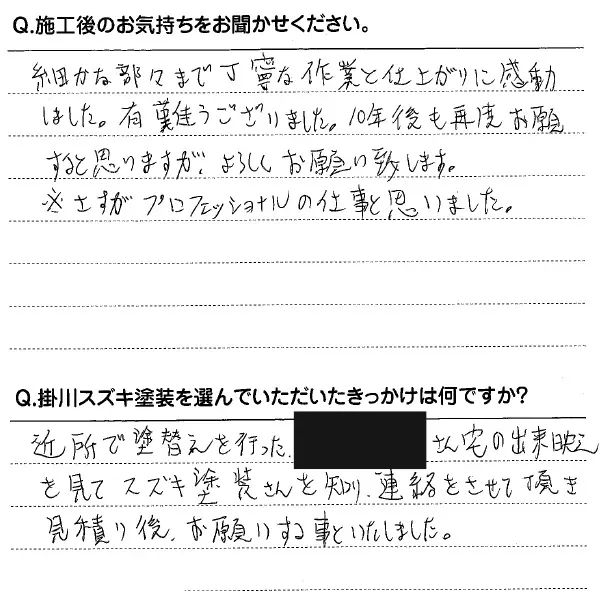 Q.施工後のお気持ちをお聞かせください。
細かな部々まで丁寧な作業と仕上がりに感動
しました。有難うございました。10年後も再度お願
すると思いますが、よろしくお願い致します。
※さすがプロフェッショナルの仕事と思いました。
Q.掛川スズキ塗装を選んでいただいたきっかけは何ですか?
近所で塗替えを行った、 さん宅の出来映え
を見てスズキ塗装さんを知り、連絡をさせて頂き
見積り後、お願いする事といたしました。